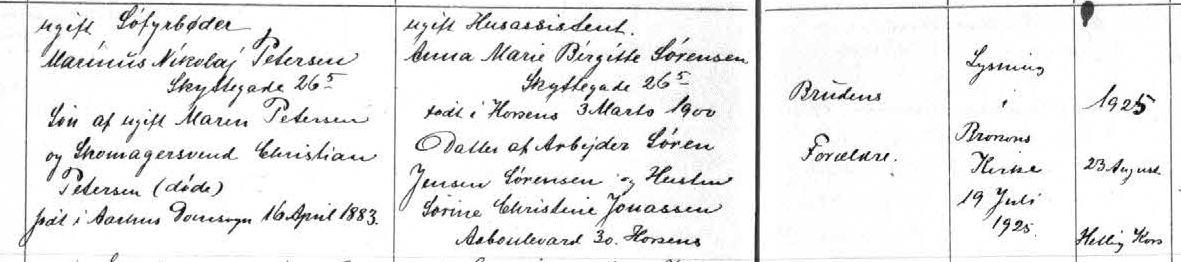 ugift Søfyrbøder
Marinus Nikolaj Petersen
Skyttegade 26⁵
Søn af ugift Maren Petersen
og Skomagersvend Christian
Petersen (døde)
født i Aarhus Domsogn 16 April 1883.
ugift Husassistent.
Anna Marie Birgitte Sørensen
Skyttegade 26⁵
født i Horsens 3 Marts 1900
Datter af Arbejder Søren
Jensen Sørensen og Hustru
Sørine Christine Jonassen
Aaboulevard 30. Horsens
Brudens
Forældre.
Lysning
i
Brorsons
Kirke
19 Juli
1925.
1925
23 August
Hellig Kors